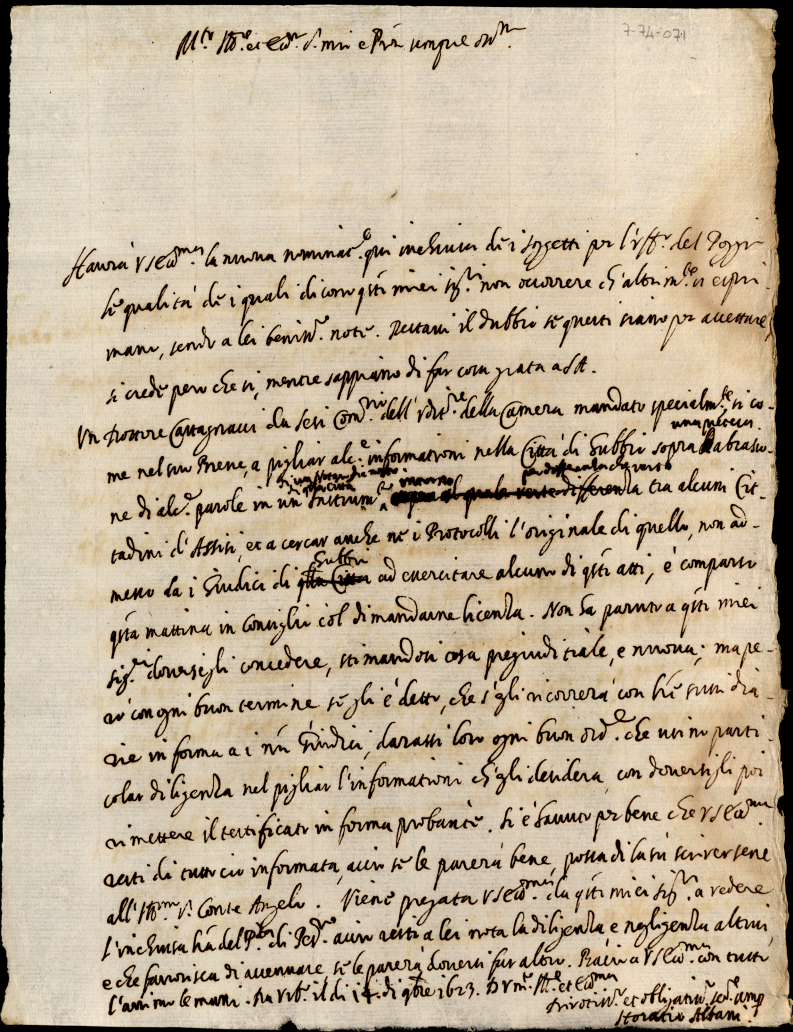 7-74-071
Mto Illre et Ecc.mo S. mio e Pron sempre oss.mo
Havrà V S Ecc.ma la nuova nominae. qui inchiusa dè i soggetti per l'uff.o del
le qualità dè i quali dicono q'sti miei sig.ri non occorrere ch'altrim.te si espri-
mano, sendo a lei beniss.o note. Restavi il dubbio se questi siano per accettare,
si crede però che sì, mentre sappiano di far cosa grata a SA.
Un Dottore Castagnacci da Sesi Com.rio dell' Udit.re della Camera mandato specialm.te, si co-
una pretesa
me nel suo Breve, a pigliar alc.e informationi nella Città di Gubbio sopra abrasio-
di un Notar di detta
di q'lla città
inverno
ne di alc.e parole in un Instrum.to tra alcuni Cit-
tadini d'Assisi, et a cercar anche nè i Protocolli l'originale di quello, non ad-
Gubbio
messo da i Giudici di q'lla Città ad essercitare alcuno di q'sti atti, è comparso
q'sta mattina in Consiglio col dimandarne licenza. Non ha paruto a q'sti miei
sig.ri doversegli concedere, stimandosi cosa pregiuditiale, e nuova; ma pe-
rò con ogni buon termine se gli è detto, che s'egli ricorrerà con l're sussidia-
rie in forma a i n'ri Giudici, darassi loro ogni buon ord.e che usino parti-
colar diligenza nel pigliar l'informationi ch'egli desidera, con doversigli poi
rimettere il tertificato in forma probante. Si è havuto per bene che V S Ecc.ma
resti di tutto ciò informata, acciò se le parerà bene, possa di costà scriversene
all' Ill.mo S.r Conte Angelo. Viene pregata V S Ecc.ma da q'sti miei sig.ri a vedere
l'inchiusa l'ra del di acciò resti a lei nota la diligenza e negligenza altrui,
e che favorisca di accennare, se le parerà doversi far altro. Bacio a V S Ecc.ma con tutto
l'animo le mani. Da Urb.o il di 14 di q'bre 1623. D V m.to Ill.re et Ecc.ma
Divotiss.o et obligatiss.o ser.re semp.
Horatio Albani